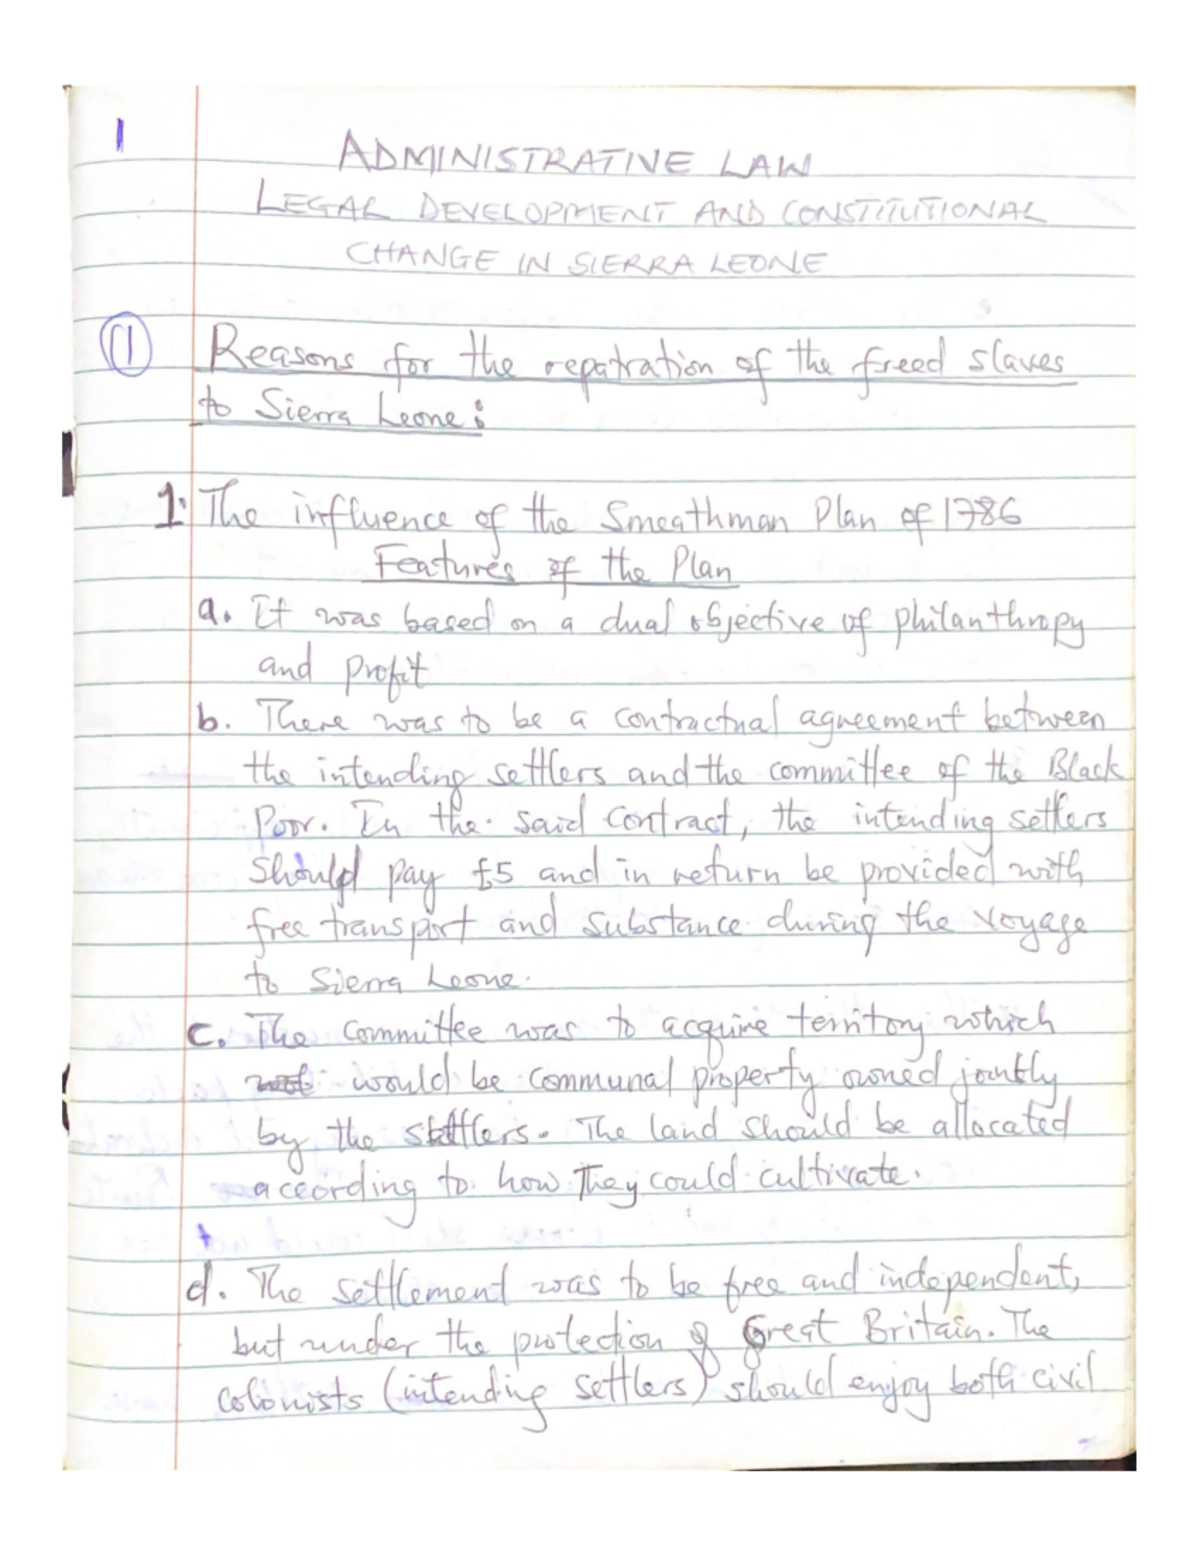 1
ADMINISTRATIVE LAW
LEGAL DEVELOPMENT AND CONSTITUTIONAL
CHANGE IN SIERRA LEONE
(1) Reasons for the repatration of the freed slaves
to Sierra Leone:
1. The influence of the Smeathman Plan of 1786
Features of the Plan
a. It was based on a dual objective of philanthropy
and profit
b. There was to be a contractual agreement between
the intending settlers and the committee of the Black
Poor. In the said contract, the intending settlers
should pay £5 and in return be provided with
free transport and substance during the voyage
to Sierra Leone.
c. The committee was to acquire territory which
would be communal property owned jointly
by the settlers. The land should be allocated
according to how They could cultivate.
d. The settlement was to be free and independent,
but under the protection of Great Britain. The
colonists (intending settlers) should enjoy both civil